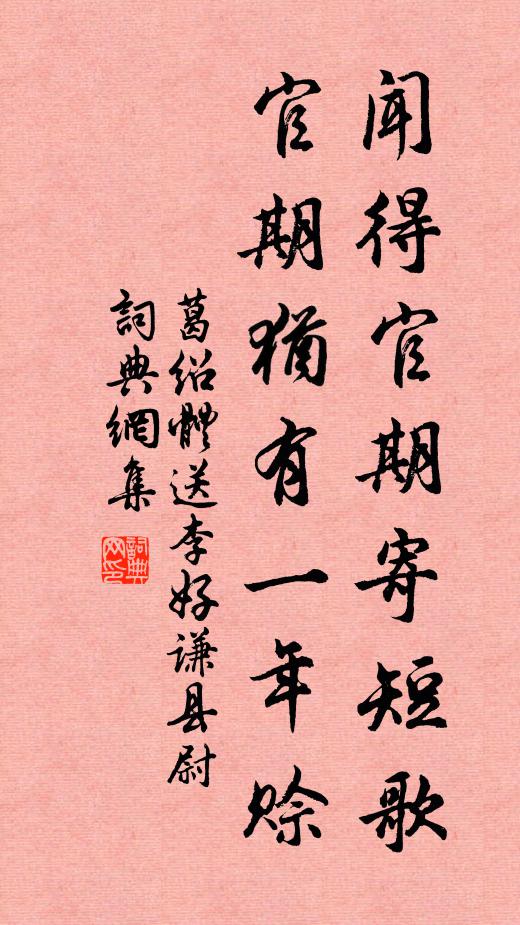 聞得官期寄短歌
官期猶有一年赊
葛绍體送李好谦县尉
詞典網集
詞典网印